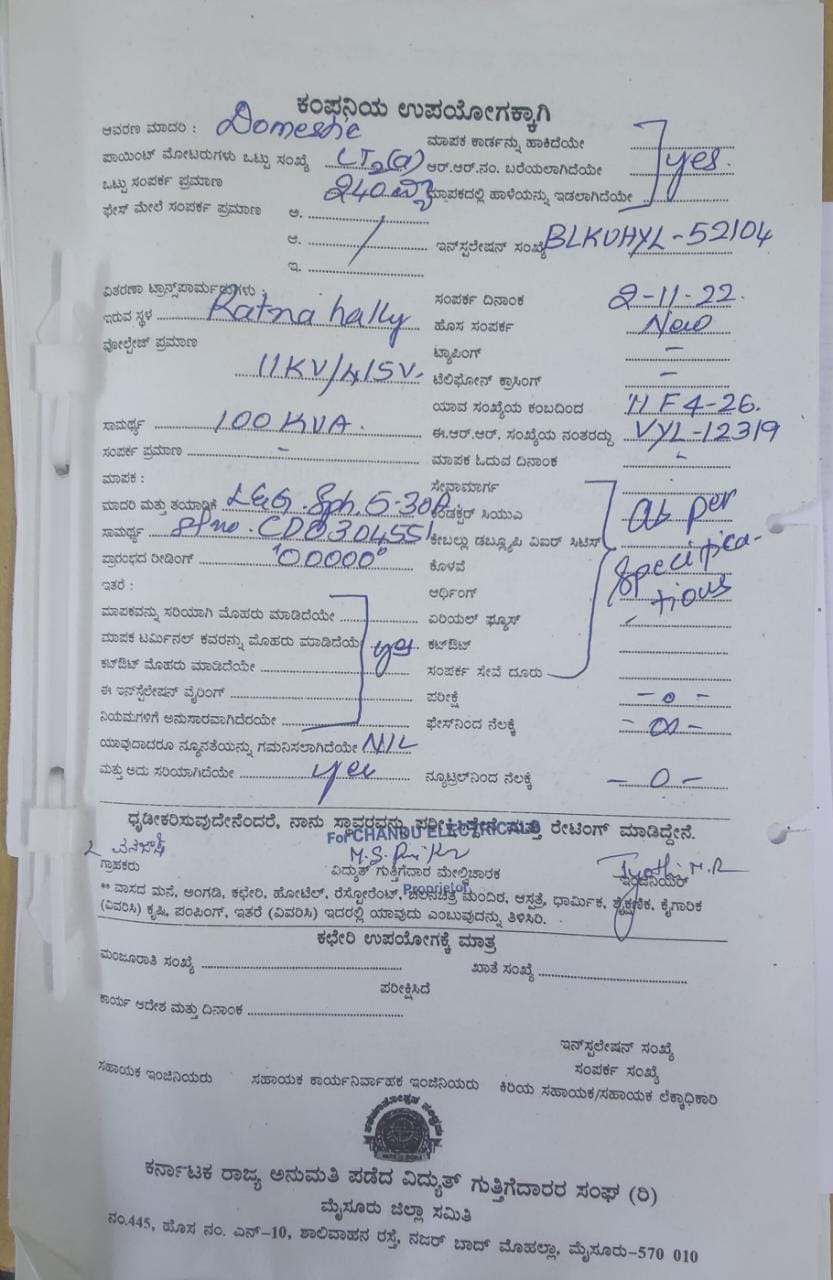 ಕಂಪನಿಯ ಉಪಯೋಗಕ್ಕಾಗಿ
ಆವರಣ ಮಾದರಿ : Domestic
ಮಾಪಕ ಕಾರ್ಡನ್ನು ಹಾಕಿದೆಯೇ
ಪಾಯಿಂಟ್ ಮೋಟರುಗಳು ಒಟ್ಟು ಸಂಖ್ಯೆ LT2(a) ಆರ್.ಆರ್.ನಂ. ಬರೆಯಲಾಗಿದೆಯೇ yes.
ಒಟ್ಟು ಸಂಪರ್ಕ ಪ್ರಮಾಣ 240 ಮಾಪಕದಲ್ಲಿ ಹಾಳೆಯನ್ನು ಇಡಲಾಗಿದೆಯೇ
ಫೇಸ್ ಮೇಲೆ ಸಂಪರ್ಕ ಪ್ರಮಾಣ ಅ.
ಆ. ಇನ್‌ಸ್ಟಲೇಷನ್ ಸಂಖ್ಯೆ BLKUHYL-52104
ಇ.
ವಿತರಣಾ ಟ್ರಾನ್ಸ್‌ಪಾರ್ಮರುಗಳು : ಸಂಪರ್ಕ ದಿನಾಂಕ 2-11-22.
ಇರುವ ಸ್ಥಳ Ratnahally ಹೊಸ ಸಂಪರ್ಕ New
ವೋಲ್ಟೇಜ್ ಪ್ರಮಾಣ ಟ್ಯಾಪಿಂಗ್ -
11KV/415V. ಟೆಲಿಫೋನ್ ಕ್ರಾಸಿಂಗ್ -
ಯಾವ ಸಂಖ್ಯೆಯ ಕಂಬದಿಂದ 11 F4-26.
ಸಾಮರ್ಥ್ಯ 100 KVA. ಈ.ಆರ್.ಆರ್. ಸಂಖ್ಯೆಯ ನಂತರದ್ದು VYL-12319
ಸಂಪರ್ಕ ಪ್ರಮಾಣ - ಮಾಪಕ ಓದುವ ದಿನಾಂಕ
ಮಾಪಕ : ಸೇವಾಮಾರ್ಗ
ಮಾದರಿ ಮತ್ತು ತಯಾರಿಕೆ L&G. Sph. 5-30A ಕಂಡಕ್ಟರ್ ಸಿಯುಎ as per
ಸಾಮರ್ಥ್ಯ Sl no. CD0304551 ಕೇಬಲ್ಲು ಡಬ್ಲ್ಯೂಪಿ ವಿಐರ್ ಸಿಟಿಸ್
ಪ್ರಾರಂಭದ ರೀಡಿಂಗ್ "00000" ಕೊಳವೆ Specifica-
ಇತರೆ : ಆರ್ಥಿಂಗ್ tions
ಮಾಪಕವನ್ನು ಸರಿಯಾಗಿ ಮೊಹರು ಮಾಡಿದೆಯೇ ಏರಿಯಲ್ ಫ್ಯೂಸ್
ಮಾಪಕ ಟರ್ಮಿನಲ್ ಕವರನ್ನು ಮೊಹರು ಮಾಡಿದೆಯೆ yes ಕಟ್‌ಔಟ್
ಕಟ್‌ಔಟ್ ಮೊಹರು ಮಾಡಿದೆಯೇ ಸಂಪರ್ಕ ಸೇವೆ ದೂರು
ಈ ಇನ್‌ಸ್ಟಲೇಷನ್ ವೈರಿಂಗ್ ಪರೀಕ್ಷೆ - 0 -
ನಿಯಮಗಳಿಗೆ ಅನುಸಾರವಾಗಿದೆರಯೇ ಫೇಸ್‌ನಿಂದ ನೆಲಕ್ಕೆ - 00 -
ಯಾವುದಾದರೂ ನ್ಯೂನತೆಯನ್ನು ಗಮನಿಸಲಾಗಿದೆಯೇ NIL
ಮತ್ತು ಅದು ಸರಿಯಾಗಿದೆಯೇ yes ನ್ಯೂಟ್ರಲ್‌ನಿಂದ ನೆಲಕ್ಕೆ - 0 -
ಧೃಡೀಕರಿಸುವುದೇನೆಂದರೆ, ನಾನು ಸ್ಥಾವರವನ್ನು ಪರೀಕ್ಷಿಸಿದ್ದೇನೆ ಮತ್ತು ರೇಟಿಂಗ್ ಮಾಡಿದ್ದೇನೆ.
For CHANDU ELECTRICALS
Jyothi M.R
ಗ್ರಾಹಕರು ವಿದ್ಯುತ್ ಗುತ್ತಿಗೆದಾರ ಮೇಲ್ವಿಚಾರಕ ಇಂಜಿನಿಯರ್
Proprietor
** ವಾಸದ ಮನೆ, ಅಂಗಡಿ, ಕಛೇರಿ, ಹೋಟೆಲ್, ರೆಸ್ಟೋರೆಂಟ್, ಚಲನಚಿತ್ರ ಮಂದಿರ, ಆಸ್ಪತ್ರೆ, ಧಾರ್ಮಿಕ, ಶೈಕ್ಷಣಿಕ, ಕೈಗಾರಿಕೆ
(ವಿವರಿಸಿ) ಕೃಷಿ, ಪಂಪಿಂಗ್, ಇತರೆ (ವಿವರಿಸಿ) ಇದರಲ್ಲಿ ಯಾವುದು ಎಂಬುವುದನ್ನು ತಿಳಿಸಿರಿ.
ಕಛೇರಿ ಉಪಯೋಗಕ್ಕೆ ಮಾತ್ರ
ಮಂಜೂರಾತಿ ಸಂಖ್ಯೆ ಖಾತೆ ಸಂಖ್ಯೆ
ಪರೀಕ್ಷಿಸಿದೆ
ಕಾರ್ಯ ಆದೇಶ ಮತ್ತು ದಿನಾಂಕ
ಇನ್‌ಸ್ಟಲೇಷನ್ ಸಂಖ್ಯೆ
ಸಂಪರ್ಕ ಸಂಖ್ಯೆ
ಸಹಾಯಕ ಇಂಜಿನಿಯರು ಸಹಾಯಕ ಕಾರ್ಯನಿರ್ವಾಹಕ ಇಂಜಿನಿಯರು ಕಿರಿಯ ಸಹಾಯಕ/ಸಹಾಯಕ ಲೆಕ್ಕಾಧಿಕಾರಿ
ಕರ್ನಾಟಕ ರಾಜ್ಯ ಅನುಮತಿ ಪಡೆದ ವಿದ್ಯುತ್ ಗುತ್ತಿಗೆದಾರರ ಸಂಘ (ರಿ)
ಮೈಸೂರು ಜಿಲ್ಲಾ ಸಮಿತಿ
ನಂ.445, ಹೊಸ ನಂ. ಎನ್-10, ಶಾಲಿವಾಹನ ರಸ್ತೆ, ನಜರ್ ಬಾದ್ ಮೊಹಲ್ಲಾ, ಮೈಸೂರು-570 010